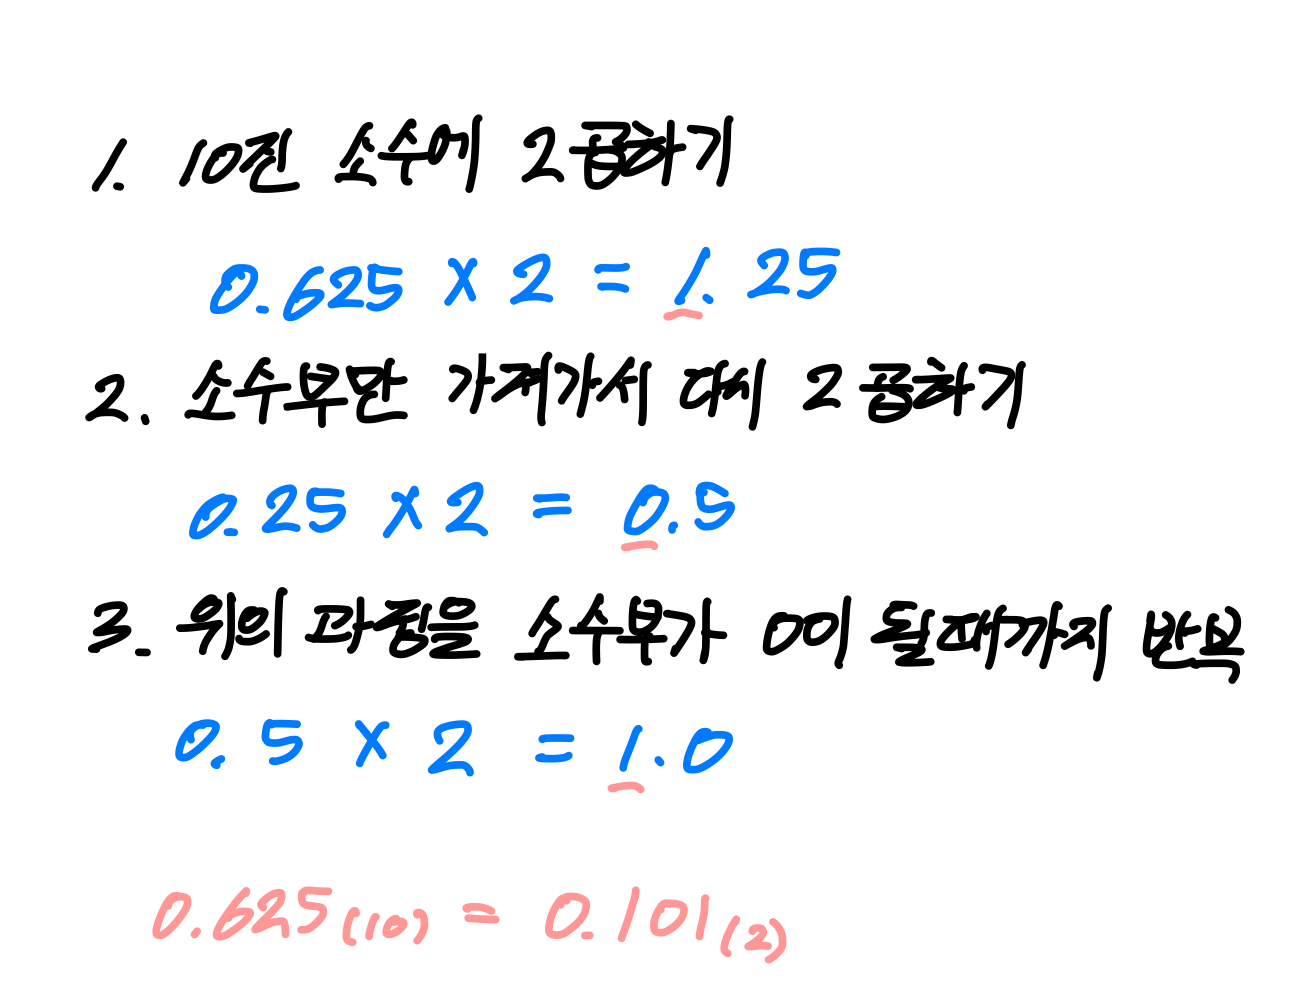 1. 10진 소수에 2곱하기
0.625 × 2 = 1.25
2. 소수부만 가져가서 다시 2곱하기
0.25 × 2 = 0.5
3. 위의 과정을 소수부가 0이 될때까지 반복
0.5 × 2 = 1.0
0.625(10) = 0.101(2)